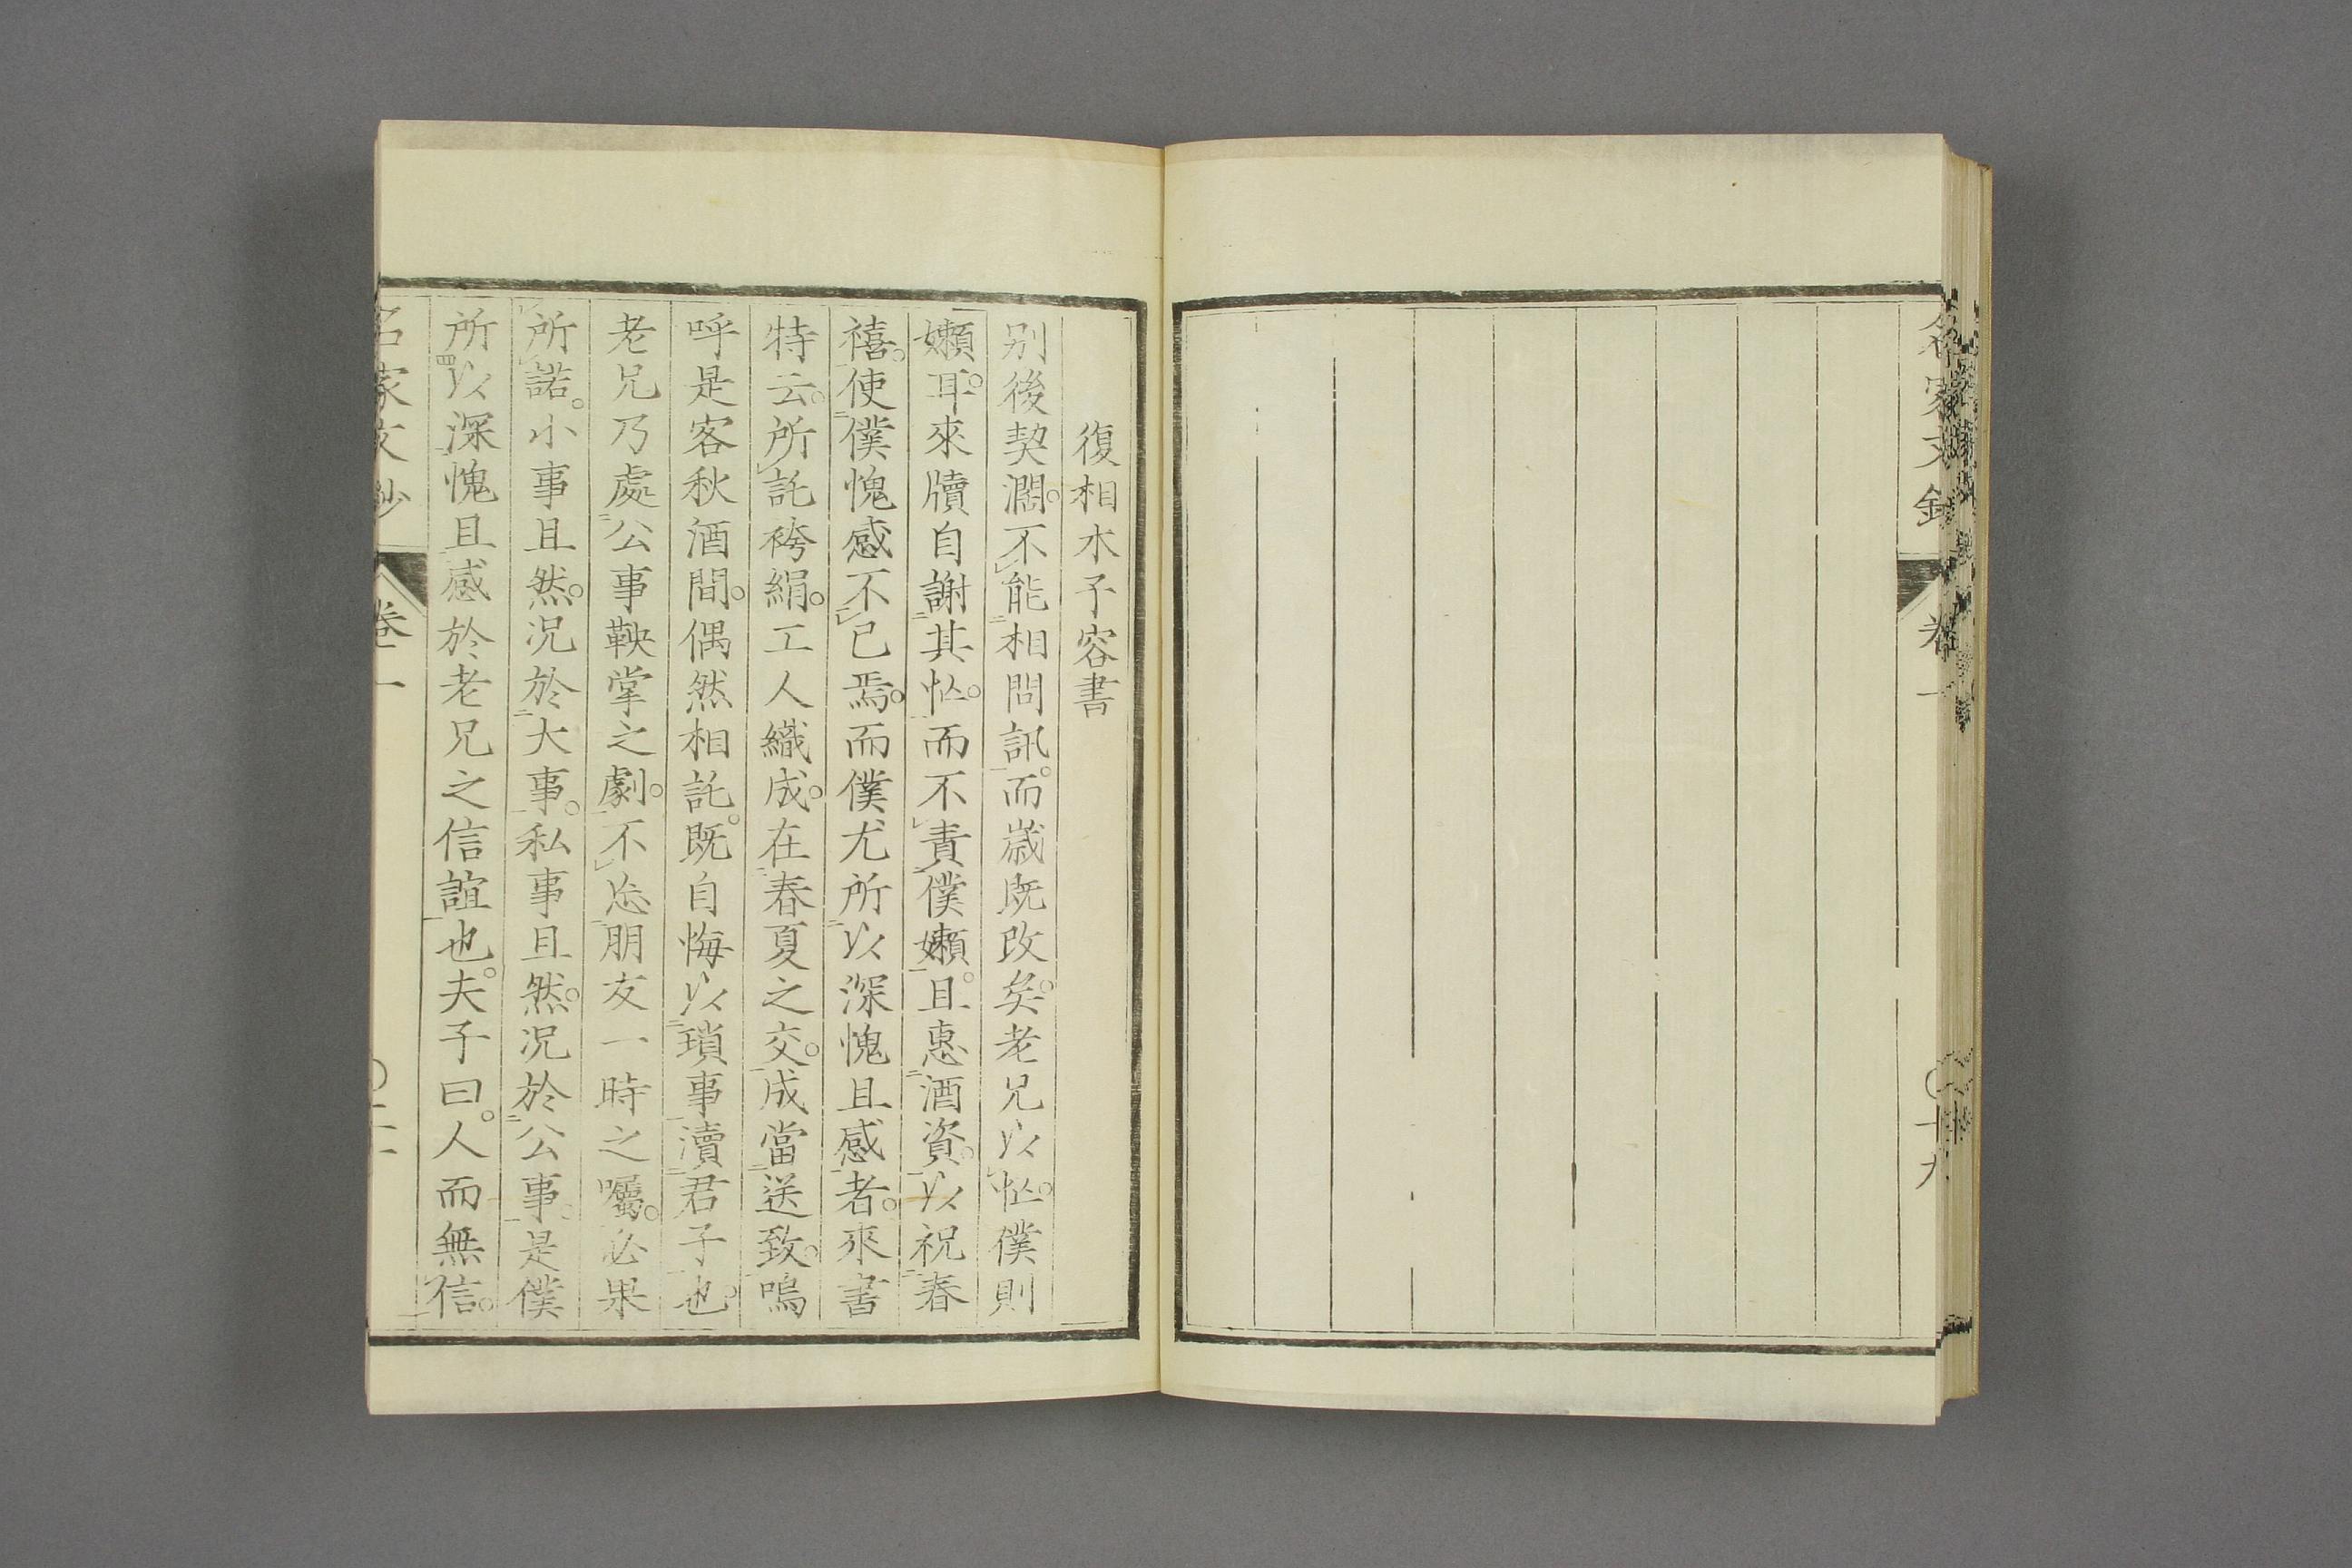 名家文鈔
卷一
〇十九
復相木子容書
别後契濶。不能相問訊。而歳既改矣。老兄以忙。僕則
嬾耳。來牘自謝其忙。而不責僕嬾。且惠酒資。以祝春
禧。使僕愧感不已焉。而僕尤所以深愧且感者。來書
特云。所託袴絹。工人織成。在春夏之交。成當送致。嗚
呼是客秋酒間。偶然相託。既自悔以瑣事瀆君子也。
老兄乃處公事鞅掌之劇。不忘朋友一時之囑。必果
所諾。小事且然。况於大事。私事且然。况於公事。是僕
所以深愧且感於老兄之信誼也。夫子曰。人而無信。
名家文鈔
卷一